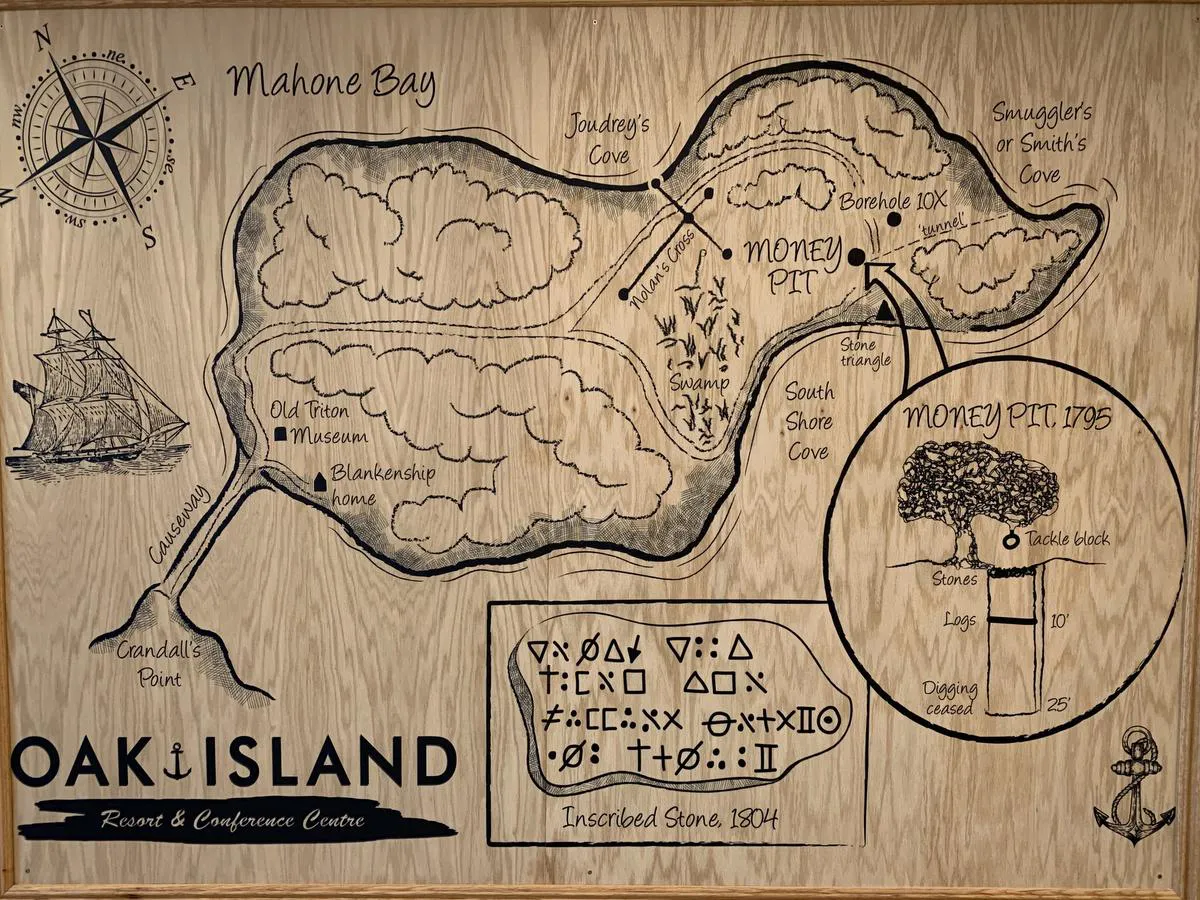 N
ne
E
se
S
sw
W
nw
Mahone Bay
Joudrey's
Cove
Smuggler's
or Smith's
Cove
Borehole 10X
'tunnel'
MONEY
PIT
Nolan's Cross
Stone
triangle
Swamp
South
Shore
Cove
Old Triton
Museum
Blankenship
home
Causeway
Crandall's
Point
MONEY PIT, 1795
Tackle block
Stones
Logs
10'
Digging
ceased
25'
Inscribed Stone, 1804
OAK ISLAND
Resort & Conference Centre